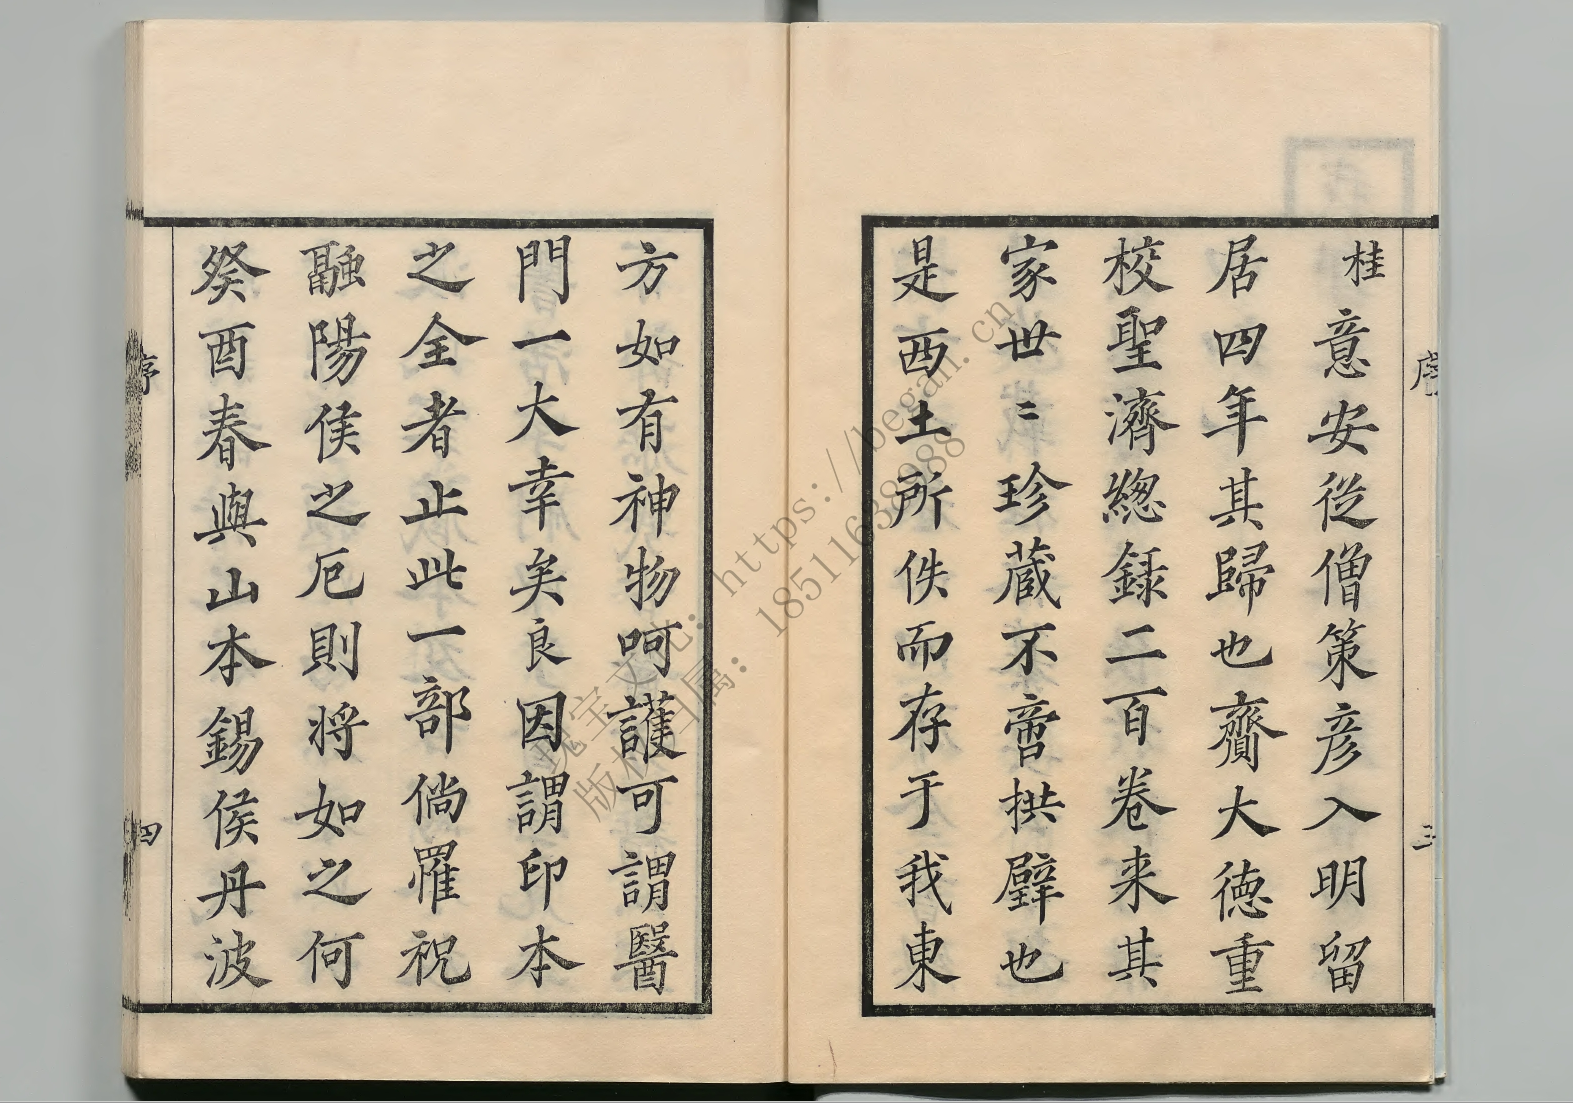 桂意安從僧策彦入明留
居四年其歸也齎大德重
校聖濟緫録二百卷来其
家世〻珍蔵不啻拱璧也
是西土所佚而存于我東
方如有神物呵護可謂醫
門一大幸矣良因謂印本
之全者止此一部倘罹祝
融陽侯之厄則将如之何
癸酉春與山本錫侯丹波
序
三
序
四
瑰宝文化：https://began.cn
版权归属：18511638988